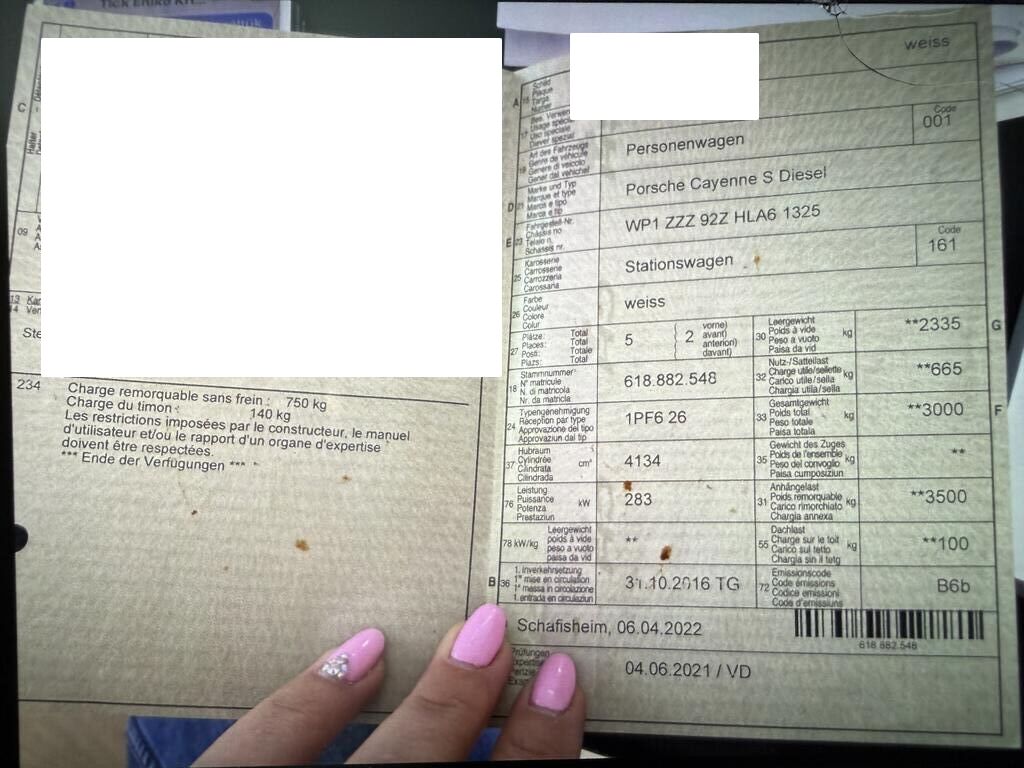 weiss
C
09
Ste
234
Charge remorquable sans frein : 750 kg
Charge du timon : 140 kg
Les restrictions imposées par le constructeur, le manuel
d'utilisateur et/ou le rapport d'un organe d'expertise
doivent être respectées.
*** Ende der Verfügungen ***
A 15 Schild Plaque Targa Numer
17
Code
001
19 Art des Fahrzeugs Genre de véhicule Genere di veicolo Gener dal vehichel
Personenwagen
D 21 Marke und Typ Marque et type Marca e tipo Marca e tip
Porsche Cayenne S Diesel
E 23 Fahrgestell-Nr. Châssis no Telaio n. Schassis nr.
WP1 ZZZ 92Z HLA6 1325
25 Karosserie Carrosserie Carrozzeria Carossaria
Stationswagen
Code
161
26 Farbe Couleur Colore Colur
weiss
27 Plätze: Total Places: Total Posti: Totale Plazs: Total
5 ( 2 vorne) avant) anteriori) davant)
30 Leergewicht Poids à vide Peso a vuoto Paisa da vid kg
**2335 G
18 Stammnummer N° matricule N. di matricola Nr. da matricla
618.882.548
32 Nutz-/Sattellast Charge utile/sellette Carico utile/sella Chargia utila/sella kg
**665
24 Typengenehmigung Réception par type Approvazione del tipo Approvaziun dal tip
1PF6 26
33 Gesamtgewicht Poids total Peso totale Paisa totala kg
**3000 F
37 Hubraum Cylindrée Cilindrata Cilindrada cm³
4134
35 Gewicht des Zuges Poids de l'ensemble Peso del convoglio Paisa cumposiziun kg
**
76 Leistung Puissance Potenza Prestaziun kW
283
31 Anhängelast Poids remorquable Carico rimorchiato Chargia annexa kg
**3500
78 kW/kg Leergewicht poids à vide peso a vuoto paisa da vid
**
55 Dachlast Charge sur le toit Carico sul tetto Chargia sin il tetg kg
**100
B 36 1. Inverkehrsetzung 1re mise en circulation 1a messa in circolazione 1. entrada en circulaziun
31.10.2016 TG
72 Emissionscode Code émissions Codice emissioni Code d'emissiuns
B6b
Schafisheim, 06.04.2022
618.882.548
Prüfungen
04.06.2021 / VD